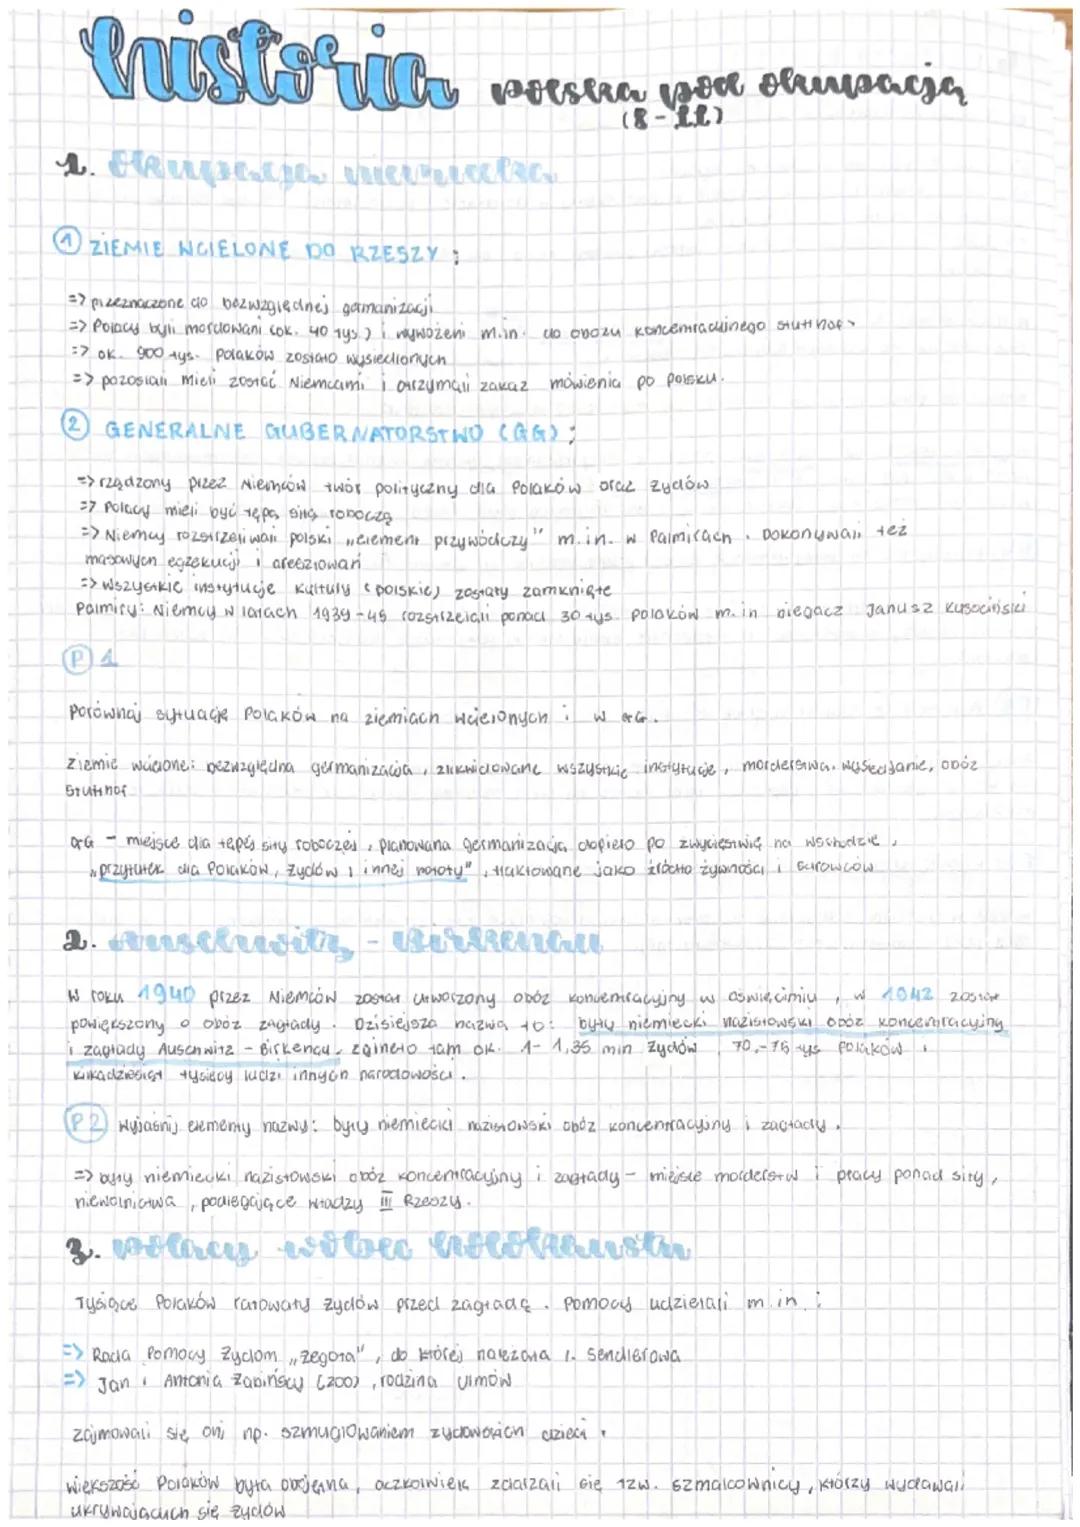 historia polska pod okupacją
(8-11)
1. Okupacja niemiecka
1 ZIEMIE WCIELONE DO RZESZY :
=> przeznaczone do bezwzględnej germanizacji
=> Polacy byli mordowani (ok. 40 tys.) i wywożeni m.in. do obozu koncentracyjnego Stutthof
=> ok. 900 tys. Polaków zostało wysiedlonych
=> pozostali mieli zostać Niemcami i otrzymali zakaz mówienia po polsku.
2 GENERALNE GUBERNATORSTWO (GG) :
=> rządzony przez Niemców twór polityczny dla Polaków oraz Żydów
=> Polacy mieli być tępą siłą roboczą
=> Niemcy rozstrzeliwali polski „element przywódczy" m.in. w Palmirach. Dokonywali też
masowych egzekucji i aresztowań
=> wszystkie instytucje kultury (polskie) zostały zamknięte
Palmiry: Niemcy w latach 1939-45 rozstrzelali ponad 30 tys. Polaków m.in biegacz Janusz Kusociński
P 1
Porównaj sytuację Polaków na ziemiach wcielonych i w GG.
Ziemie wcielone: bezwzględna germanizacja, zlikwidowane wszystkie instytucje, morderstwa, wysiedlanie, obóz
Stutthof
GG - miejsce dla tępej siły roboczej, planowana germanizacja dopiero po zwycięstwie na wschodzie,
„przytułek dla Polaków, Żydów i innej hołoty", traktowane jako źródło żywności i surowców
2. Auschwitz - Birkenau
W roku 1940 przez Niemców został utworzony obóz koncentracyjny w Oświęcimiu, w 1942 został
powiększony o obóz zagłady. Dzisiejsza nazwa to: były niemiecki nazistowski obóz koncentracyjny
i zagłady Auschwitz - Birkenau. Zginęło tam ok. 1- 1,35 mln Żydów, 70,-75 tys Polaków i
kilkadziesiąt tysięcy ludzi innych narodowości.
P 2 Wyjaśnij elementy nazwy: były niemiecki nazistowski obóz koncentracyjny i zagłady.
=> były niemiecki nazistowski obóz koncentracyjny i zagłady - miejsce morderstw i pracy ponad siły,
niewolnictwa, podlegające władzy III Rzeszy.
3. Polacy wobec holokaustu
Tysiące Polaków ratowały Żydów przed zagładą. Pomocy udzielali m.in :
=> Rada Pomocy Żydom „Żegota", do której należała I. Sendlerowa
=> Jan i Antonia Żabińscy (zoo), rodzina Ulmów
zajmowali się oni np. szmuglowaniem żydowskich dzieci.
większość Polaków była obojętna, aczkolwiek zdarzali się tzw. szmalcownicy, którzy wydawali
ukrywających się Żydów